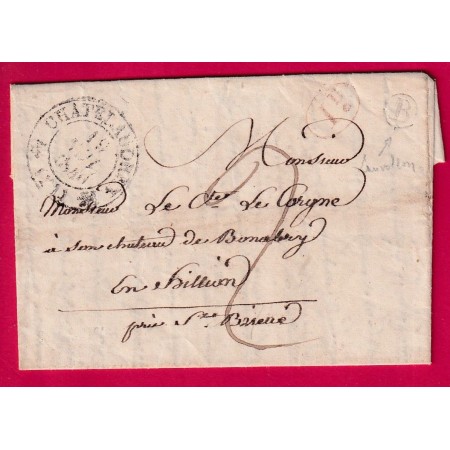 CHATELAUDREN
19
(21)
B
Monsieur
Monsieur Le Cte. Le Corgne
à son chateau de Bonabry
En hillion
près St. Brieuc
2